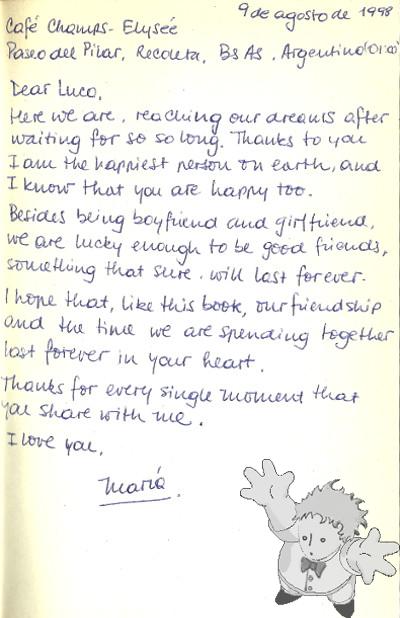 9 de agosto de 1998
Café Champs-Elyseé
Paseo del Pilar, Recoleta, Bs As, Argentina (01:00)
Dear Luca,
Here we are, reaching our dreams after
waiting for so so long. Thanks to you
I am the happiest person on earth, and
I know that you are happy too.
Besides being boyfriend and girlfriend,
we are lucky enough to be good friends,
something that sure, will last forever.
I hope that, like this book, our friendship
and the time we are spending together
last forever in your heart.
Thanks for every single moment that
you share with me.
I love you,
María.